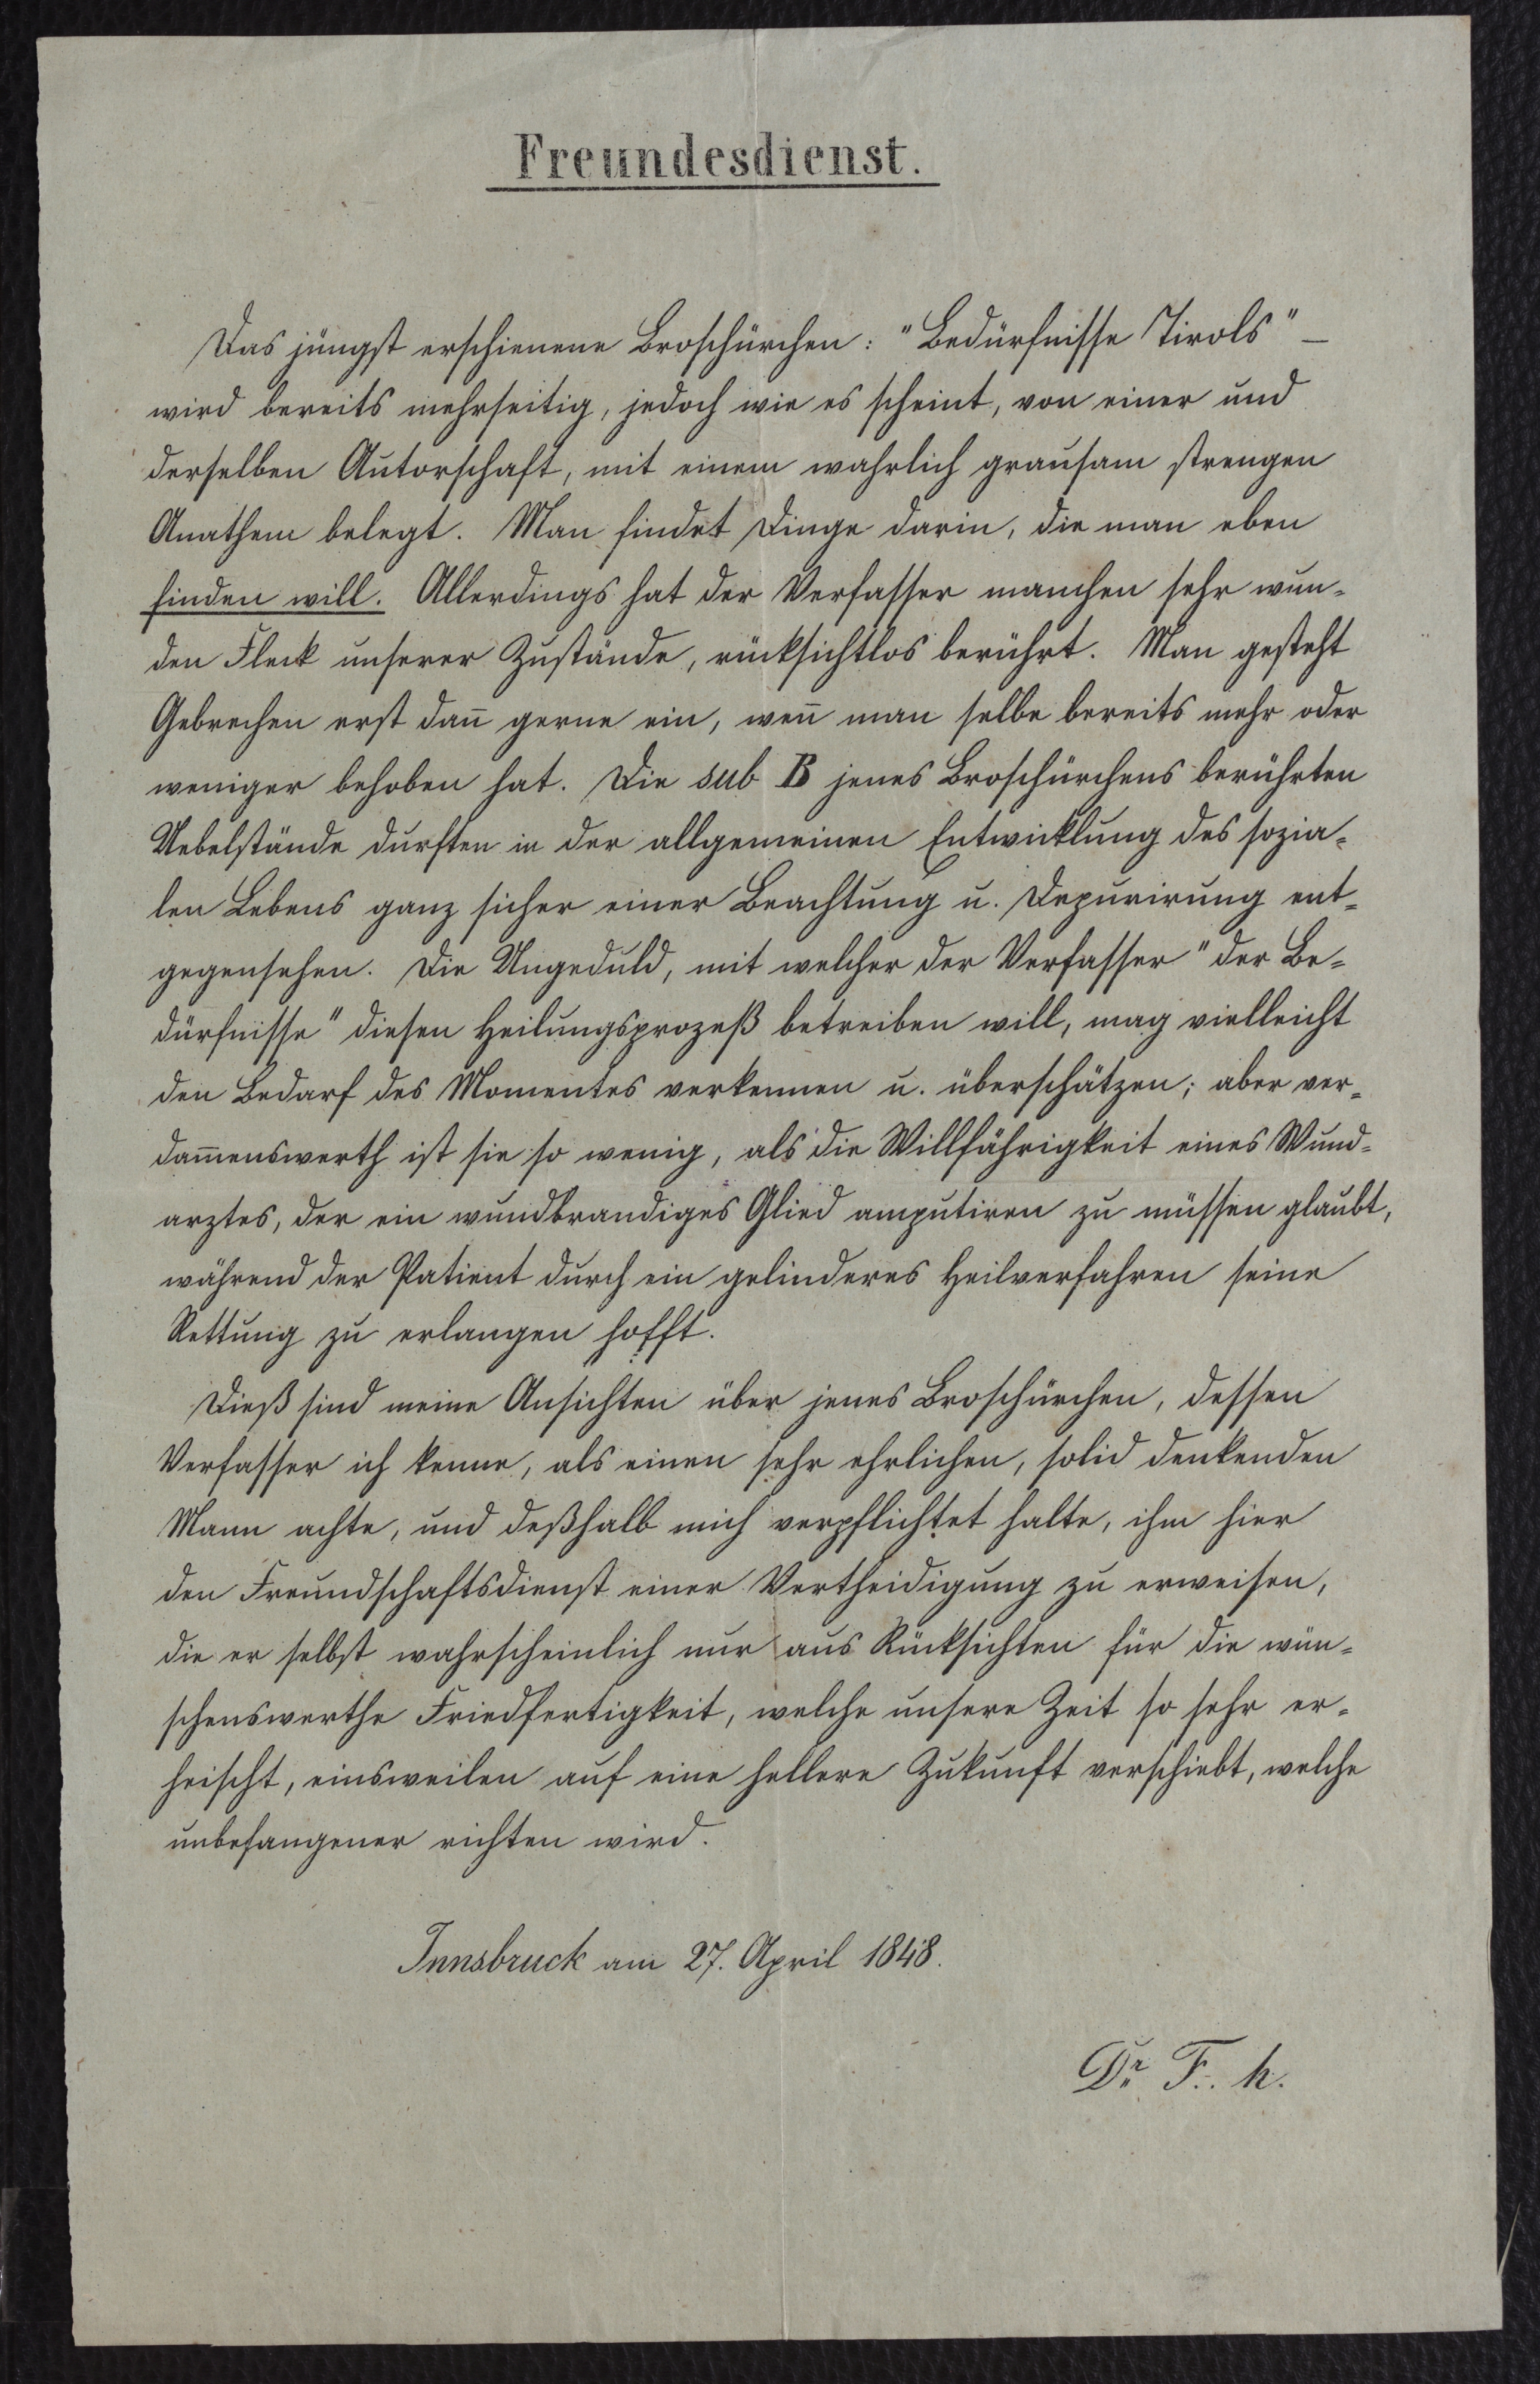 Freundesdienst.
Das jüngst erschienene Broschürchen: "Bedürfnisse Tirols" –
wird bereits mehrseitig, jedoch wie es scheint, von einer und
derselben Autorschaft, mit einem wahrlich grausam strengen
Anathem belegt. Man findet Dinge darin, die man eben
finden will. Allerdings hat der Verfasser manchen sehr wun-
den Fleck unserer Zustände, rücksichtlos berührt. Man gesteht
Gebrechen erst dan̄ gerne ein, wen̄ man selbe bereits mehr oder
weniger behoben hat. Die sub B jenes Broschürchens berührten
Uebelstände durften in der allgemeinen Entwicklung des sozia-
len Lebens ganz sicher einer Beachtung u. Depurirung ent-
gegensehen. Die Ungeduld, mit welcher der Verfasser "der Be-
dürfnisse" diesen Heilungsprozeß betreiben will, mag vielleicht
den Bedarf des Momentes verkennen u. überschätzen; aber ver-
dam̄enswerth ist sie so wenig, als die Willfährigkeit eines Wund-
arztes, der ein wundbrandiges Glied amputiren zu müssen glaubt,
während der Patient durch ein gelinderes Heilverfahren seine
Rettung zu erlangen hofft.
Dieß sind meine Ansichten über jenes Broschürchen, dessen
Verfasser ich kenne, als einen sehr ehrlichen, solid denkenden
Mann achte, und deßhalb mich verpflichtet halte, ihm hier
den Freundschaftsdienst einer Vertheidigung zu erweisen,
die er selbst wahrscheinlich nur aus Rücksichten für die wün-
schenswerthe Friedfertigkeit, welche unsere Zeit so sehr er-
heischt, einsweilen auf eine hellere Zukunft verschiebt, welche
unbefangener richten wird.
Innsbruck am 27. April 1848.
Dr. F.. h.